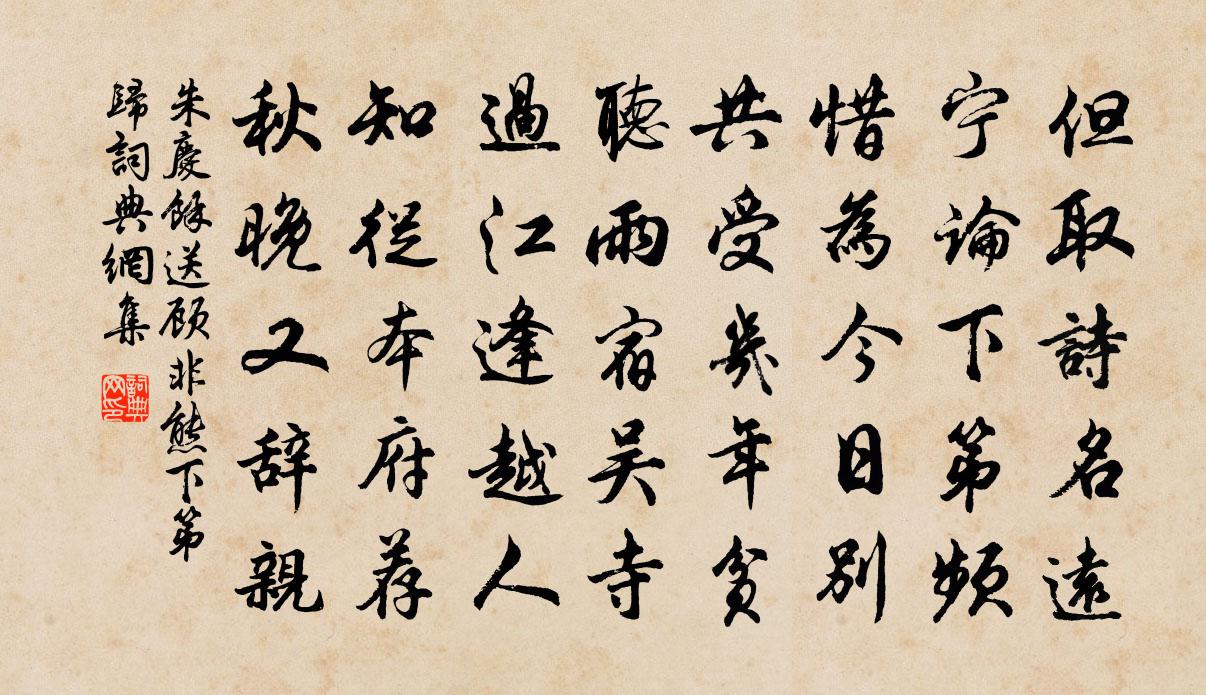 但取詩名遠
宁論下第頻
惜為今日別
共受幾年貧
聽雨宿吴寺
過江逢越人
知從本府荐
秋晚又辞親
朱慶餘送顾非熊下第
歸詞典網集
詞典
网印